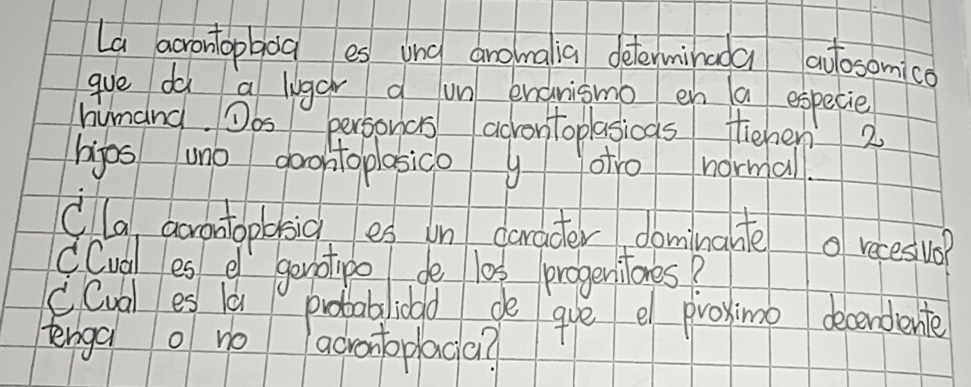 La acrontoplacia es una anomalia determinada autosomico
que da a lugar a un enanismo en la especie
humana. Dos personas acrontoplasicas tienen 2
hijos uno acrontoplasico y otro normal.
¿La acrontoplasia es un caracter dominante o recesivo?
¿Cual es el genotipo de los progenitores?
¿Cual es la probabilidad de que el proximo decendiente
tenga o no acrontoplacia?